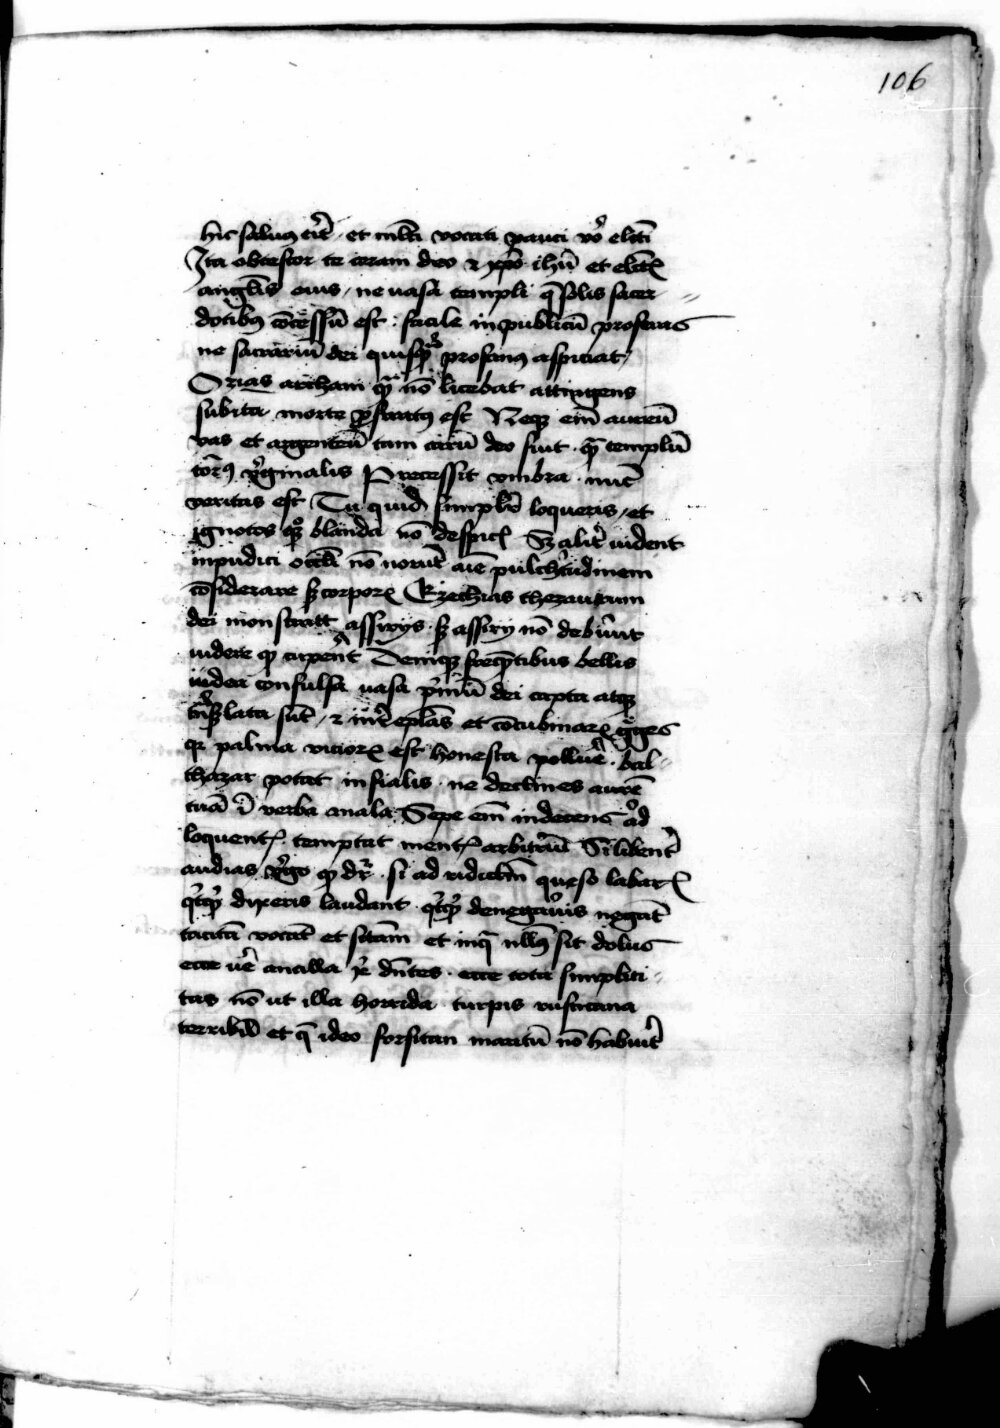 106
hic saluus erit et mlti vocati pauci vo electi
Ita obtestor te coram deo et xpo ihu et electis
anglis eius ne uasa templi que solis sacer
dotibus concessum est facile in publicum proferas
ne sacrarium dei quisquam prophanus aspiciat
Ozias archam quam non licebat attingens
subita morte prostratus est Neque enim aureum
vas et argenteum tam carum deo fuit quam templum
corporis virginalis Precessit umbra nunc
veritas est Tu quid simpliciter loqueris et
ignotos quoque blanda non despicis Sed aliter uident
inpudici oculi non norunt anime pulchritudinem
considerare sed corporis Ezechias thezaurum
dei monstratt assirijs sed assirij non debuerunt
uidere quod cuperent Denique frequentibus bellis
iudea conuulsa uasa primum dei capta atque
translata sunt et inter epulas et concubinarum greges
quia palma viciorum est honesta polluere bal
thazar potat in fialis ne declines aurem
tuam in verba mala Sepe enim indecens ad
loquentes temptat mentis arbitrium Si libenter
audias virgo quod dicitur si ad ridiculum queso labaris
quicquid dixeris laudant quicquid denegaueris negant
facetam vocant et sanctam et in qua nullus sit dolus
ecce uere ancilla xpi dicentes ecce tota simplici
tas non ut illa horrida turpis rusticana
terribilis et que ideo forsitan maritum non habuit